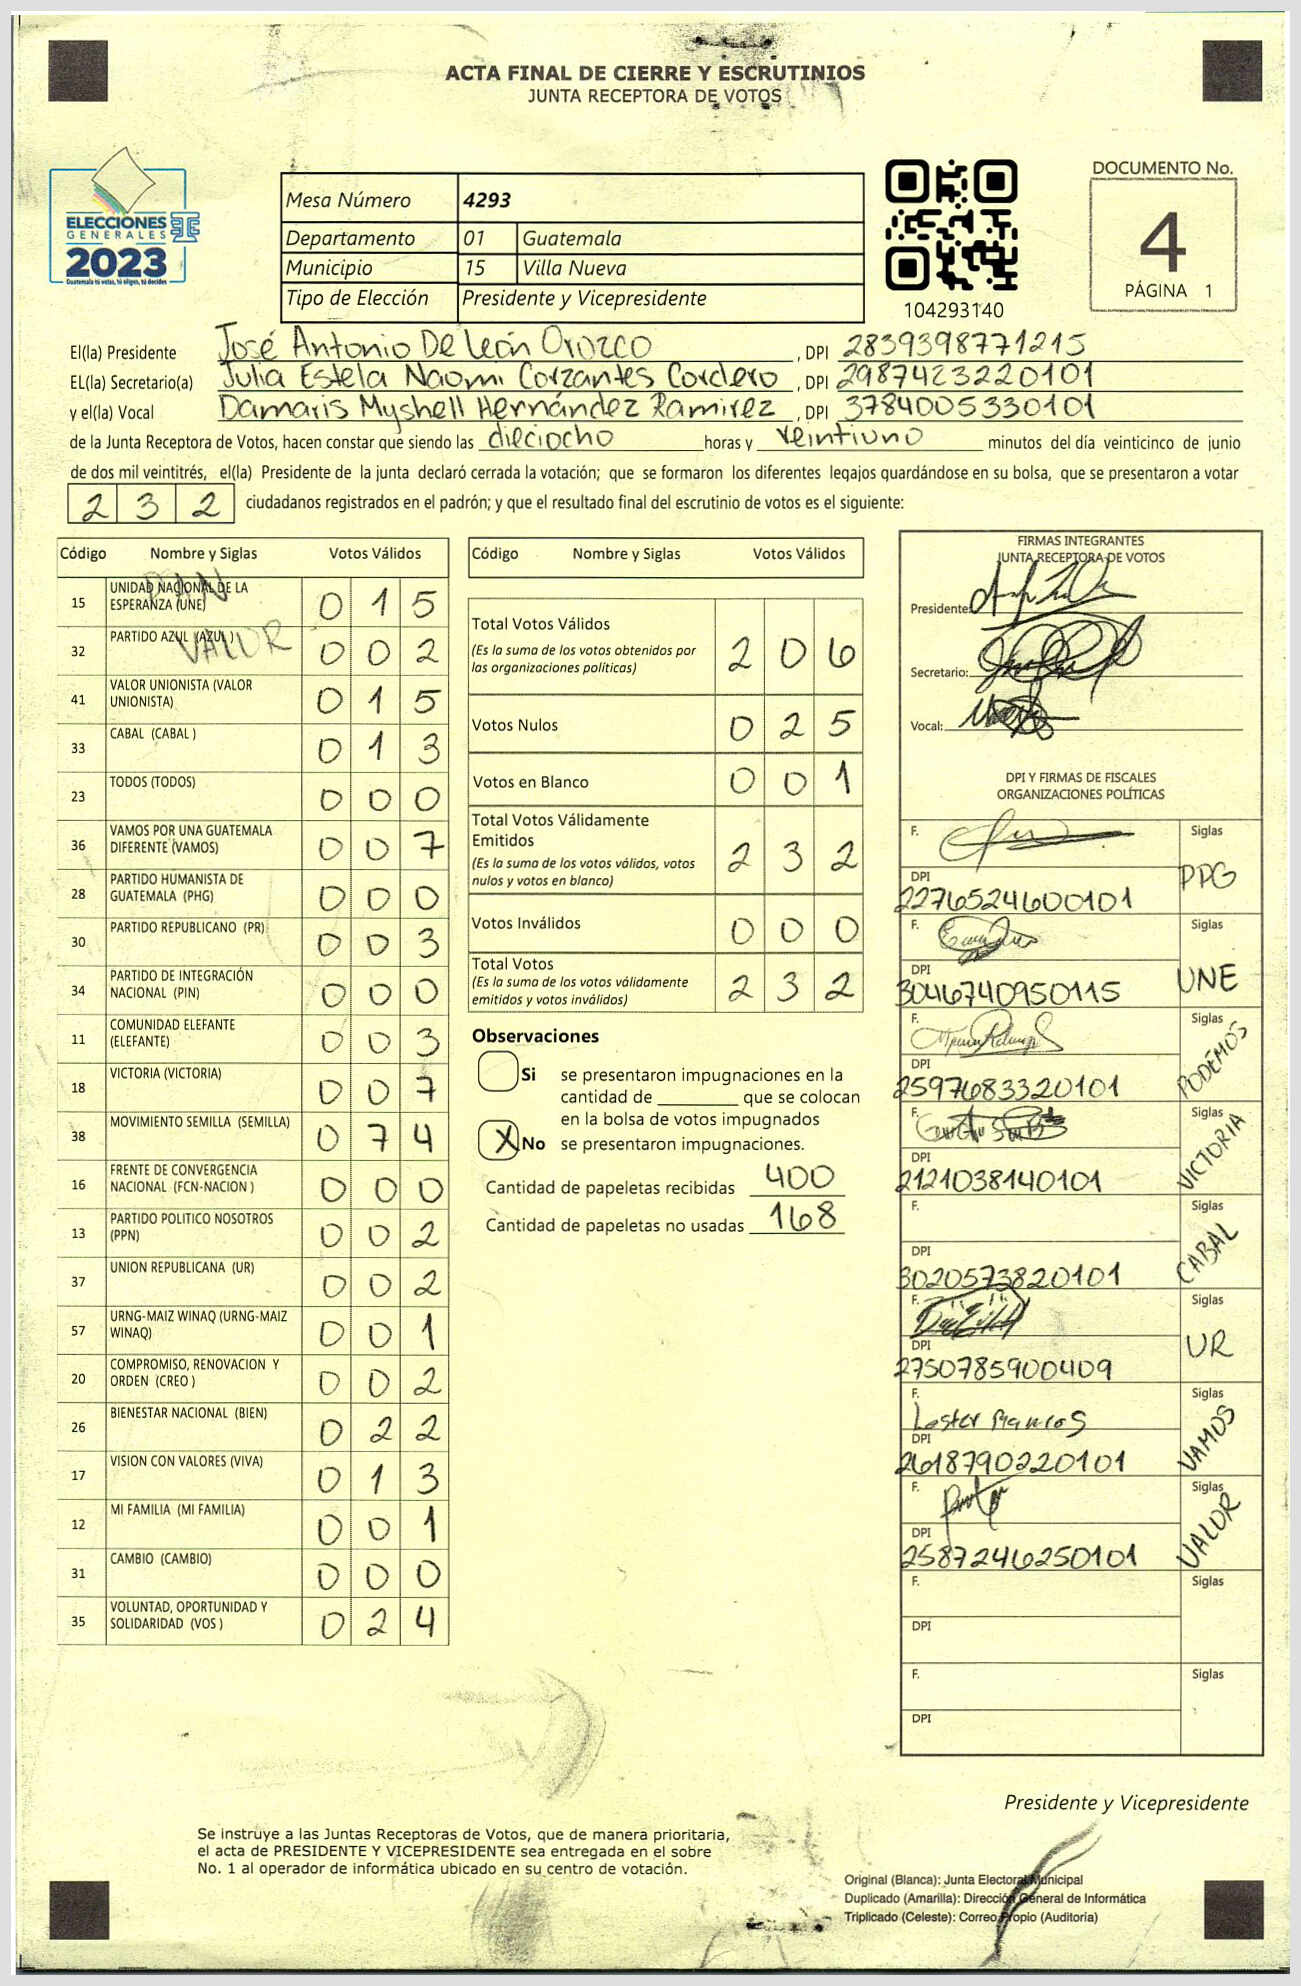 ACTA FINAL DE CIERRE Y ESCRUTINIOS
JUNTA RECEPTORA DE VOTOS
ELECCIONES
GENERALES
2023
Guatemala tú votas, tú eliges, tú decides
Mesa Número 4293
Departamento 01 Guatemala
Municipio 15 Villa Nueva
Tipo de Elección Presidente y Vicepresidente
104293140
DOCUMENTO No.
4
PÁGINA 1
El(la) Presidente José Antonio De León Orozco, DPI 2839398771215
EL(la) Secretario(a) Julia Estela Naomi Corzantes Cordero, DPI 2987423220101
y el(la) Vocal Damaris Myshell Hernández Ramirez, DPI 3784005330101
de la Junta Receptora de Votos, hacen constar que siendo las dieciocho horas y veintiuno minutos del día veinticinco de junio
de dos mil veintitrés, el(la) Presidente de la junta declaró cerrada la votación; que se formaron los diferentes legajos guardándose en su bolsa, que se presentaron a votar
232 ciudadanos registrados en el padrón; y que el resultado final del escrutinio de votos es el siguiente:
Código Nombre y Siglas Votos Válidos
15 UNIDAD NACIONAL DE LA ESPERANZA (UNE) 0 1 5
32 PARTIDO AZUL (AZUL) 0 0 2
VALOR
41 VALOR UNIONISTA (VALOR UNIONISTA) 0 1 5
33 CABAL (CABAL ) 0 1 3
23 TODOS (TODOS) 0 0 0
36 VAMOS POR UNA GUATEMALA DIFERENTE (VAMOS) 0 0 7
28 PARTIDO HUMANISTA DE GUATEMALA (PHG) 0 0 0
30 PARTIDO REPUBLICANO (PR) 0 0 3
34 PARTIDO DE INTEGRACIÓN NACIONAL (PIN) 0 0 0
11 COMUNIDAD ELEFANTE (ELEFANTE) 0 0 3
18 VICTORIA (VICTORIA) 0 0 7
38 MOVIMIENTO SEMILLA (SEMILLA) 0 7 4
16 FRENTE DE CONVERGENCIA NACIONAL (FCN-NACION ) 0 0 0
13 PARTIDO POLITICO NOSOTROS (PPN) 0 0 2
37 UNION REPUBLICANA (UR) 0 0 2
57 URNG-MAIZ WINAQ (URNG-MAIZ WINAQ) 0 0 1
20 COMPROMISO, RENOVACION Y ORDEN (CREO ) 0 0 2
26 BIENESTAR NACIONAL (BIEN) 0 2 2
17 VISION CON VALORES (VIVA) 0 1 3
12 MI FAMILIA (MI FAMILIA) 0 0 1
31 CAMBIO (CAMBIO) 0 0 0
35 VOLUNTAD, OPORTUNIDAD Y SOLIDARIDAD (VOS ) 0 2 4
Código Nombre y Siglas Votos Válidos
Total Votos Válidos 2 0 6
(Es la suma de los votos obtenidos por
las organizaciones políticas)
Votos Nulos 0 2 5
Votos en Blanco 0 0 1
Total Votos Válidamente
Emitidos 2 3 2
(Es la suma de los votos válidos, votos
nulos y votos en blanco)
Votos Inválidos 0 0 0
Total Votos 2 3 2
(Es la suma de los votos válidamente
emitidos y votos inválidos)
Observaciones
Si se presentaron impugnaciones en la
cantidad de ________ que se colocan
en la bolsa de votos impugnados
X No se presentaron impugnaciones.
Cantidad de papeletas recibidas 400
Cantidad de papeletas no usadas 168
FIRMAS INTEGRANTES
JUNTA RECEPTORA DE VOTOS
Presidente:
Secretario:
Vocal:
DPI Y FIRMAS DE FISCALES
ORGANIZACIONES POLÍTICAS
F. Siglas
DPI PPG
2276524600101
F. Siglas
DPI UNE
3046740950115
F. Siglas
DPI PODEMOS
2597683320101
F. Siglas
DPI VICTORIA
2121038140101
F. Siglas
DPI CABAL
3020573820101
F. Siglas
DPI UR
2750785900409
F. Lester Marcos Siglas
DPI VAMOS
2618790220101
F. Siglas
DPI VALOR
2587246250101
F. Siglas
DPI
F. Siglas
DPI
Presidente y Vicepresidente
Se instruye a las Juntas Receptoras de Votos, que de manera prioritaria,
el acta de PRESIDENTE Y VICEPRESIDENTE sea entregada en el sobre
No. 1 al operador de informática ubicado en su centro de votación.
Original (Blanca): Junta Electoral Municipal
Duplicado (Amarilla): Dirección General de Informática
Triplicado (Celeste): Correo Propio (Auditoria)